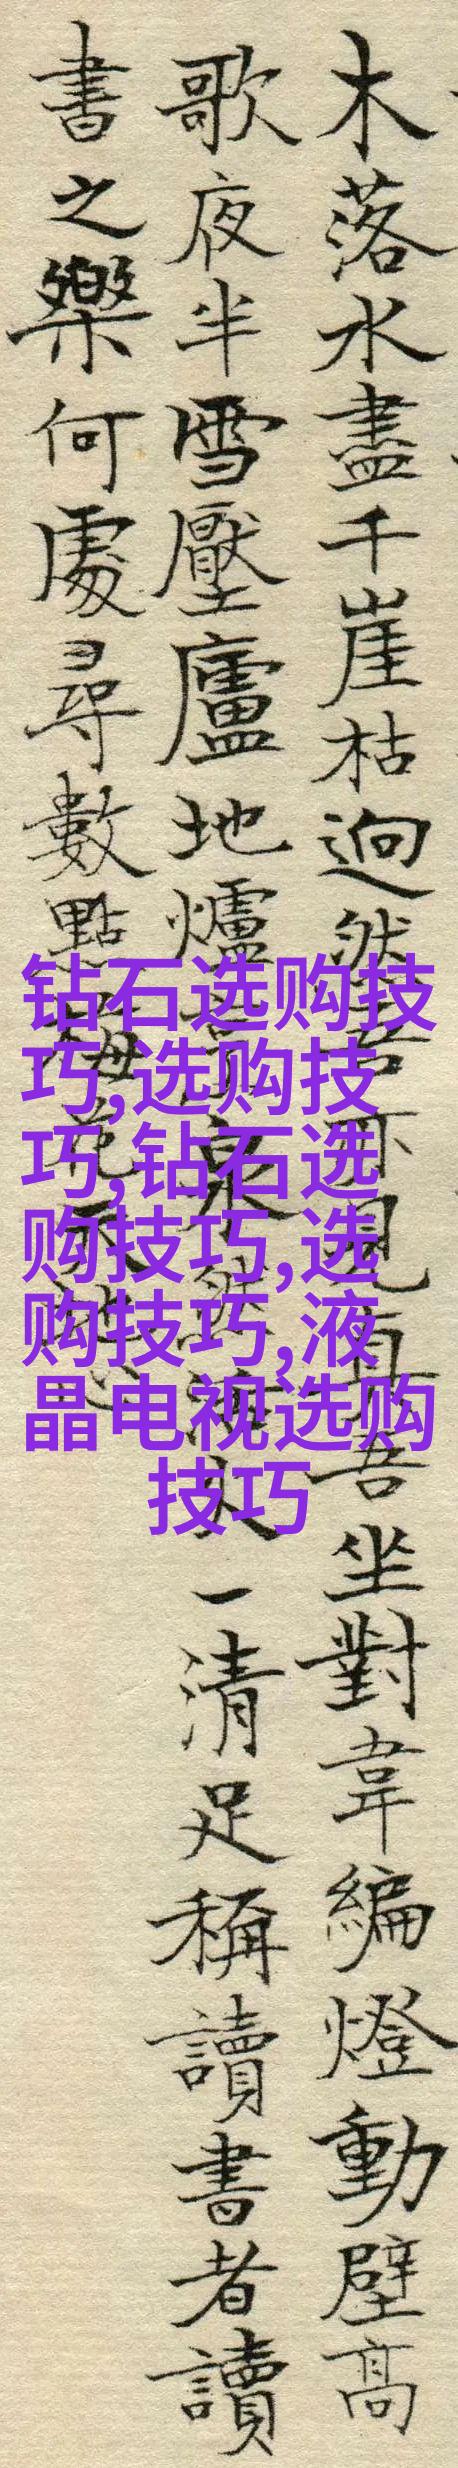 木落水盡千崖枯迥然吾亦見真吾坐對韋編燈動壁高
歌夜半雪壓廬地爐泉然活火一清足稱讀書者讀
書之樂何處尋數點梅花天地心
钻石选购技
巧,选购技
巧,钻石选
购技巧,选
购技巧,液
晶电视选购
技巧